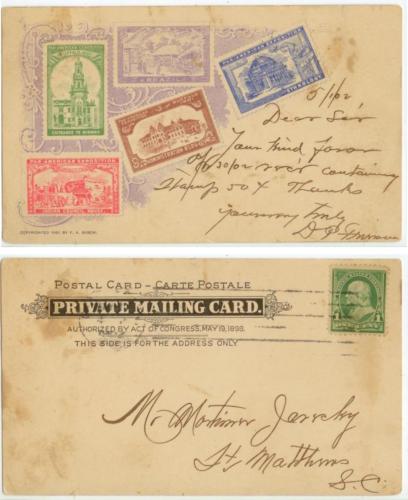 PAN-AMERICAN EXPOSITION
ENTRANCE TO MIDWAY
BRAZIL
PAN-AMERICAN EXPOSITION
PAN-AMERICAN EXPOSITION
INDIAN COUNCIL HOUSE
COPYRIGHTED 1901 BY F. A. BUSCH.
5/1/02
Dear Sir
Your kind favor
of 4/30/02 rec'd containing
Stamp 50¢ Thanks
Yours very truly
D. P.
POSTAL CARD – CARTE POSTALE
PRIVATE MAILING CARD.
AUTHORIZED BY ACT OF CONGRESS, MAY 19, 1898.
THIS SIDE IS FOR THE ADDRESS ONLY
1 1
ONE CENT
Mr Mortimer
St Matthews
S. C.